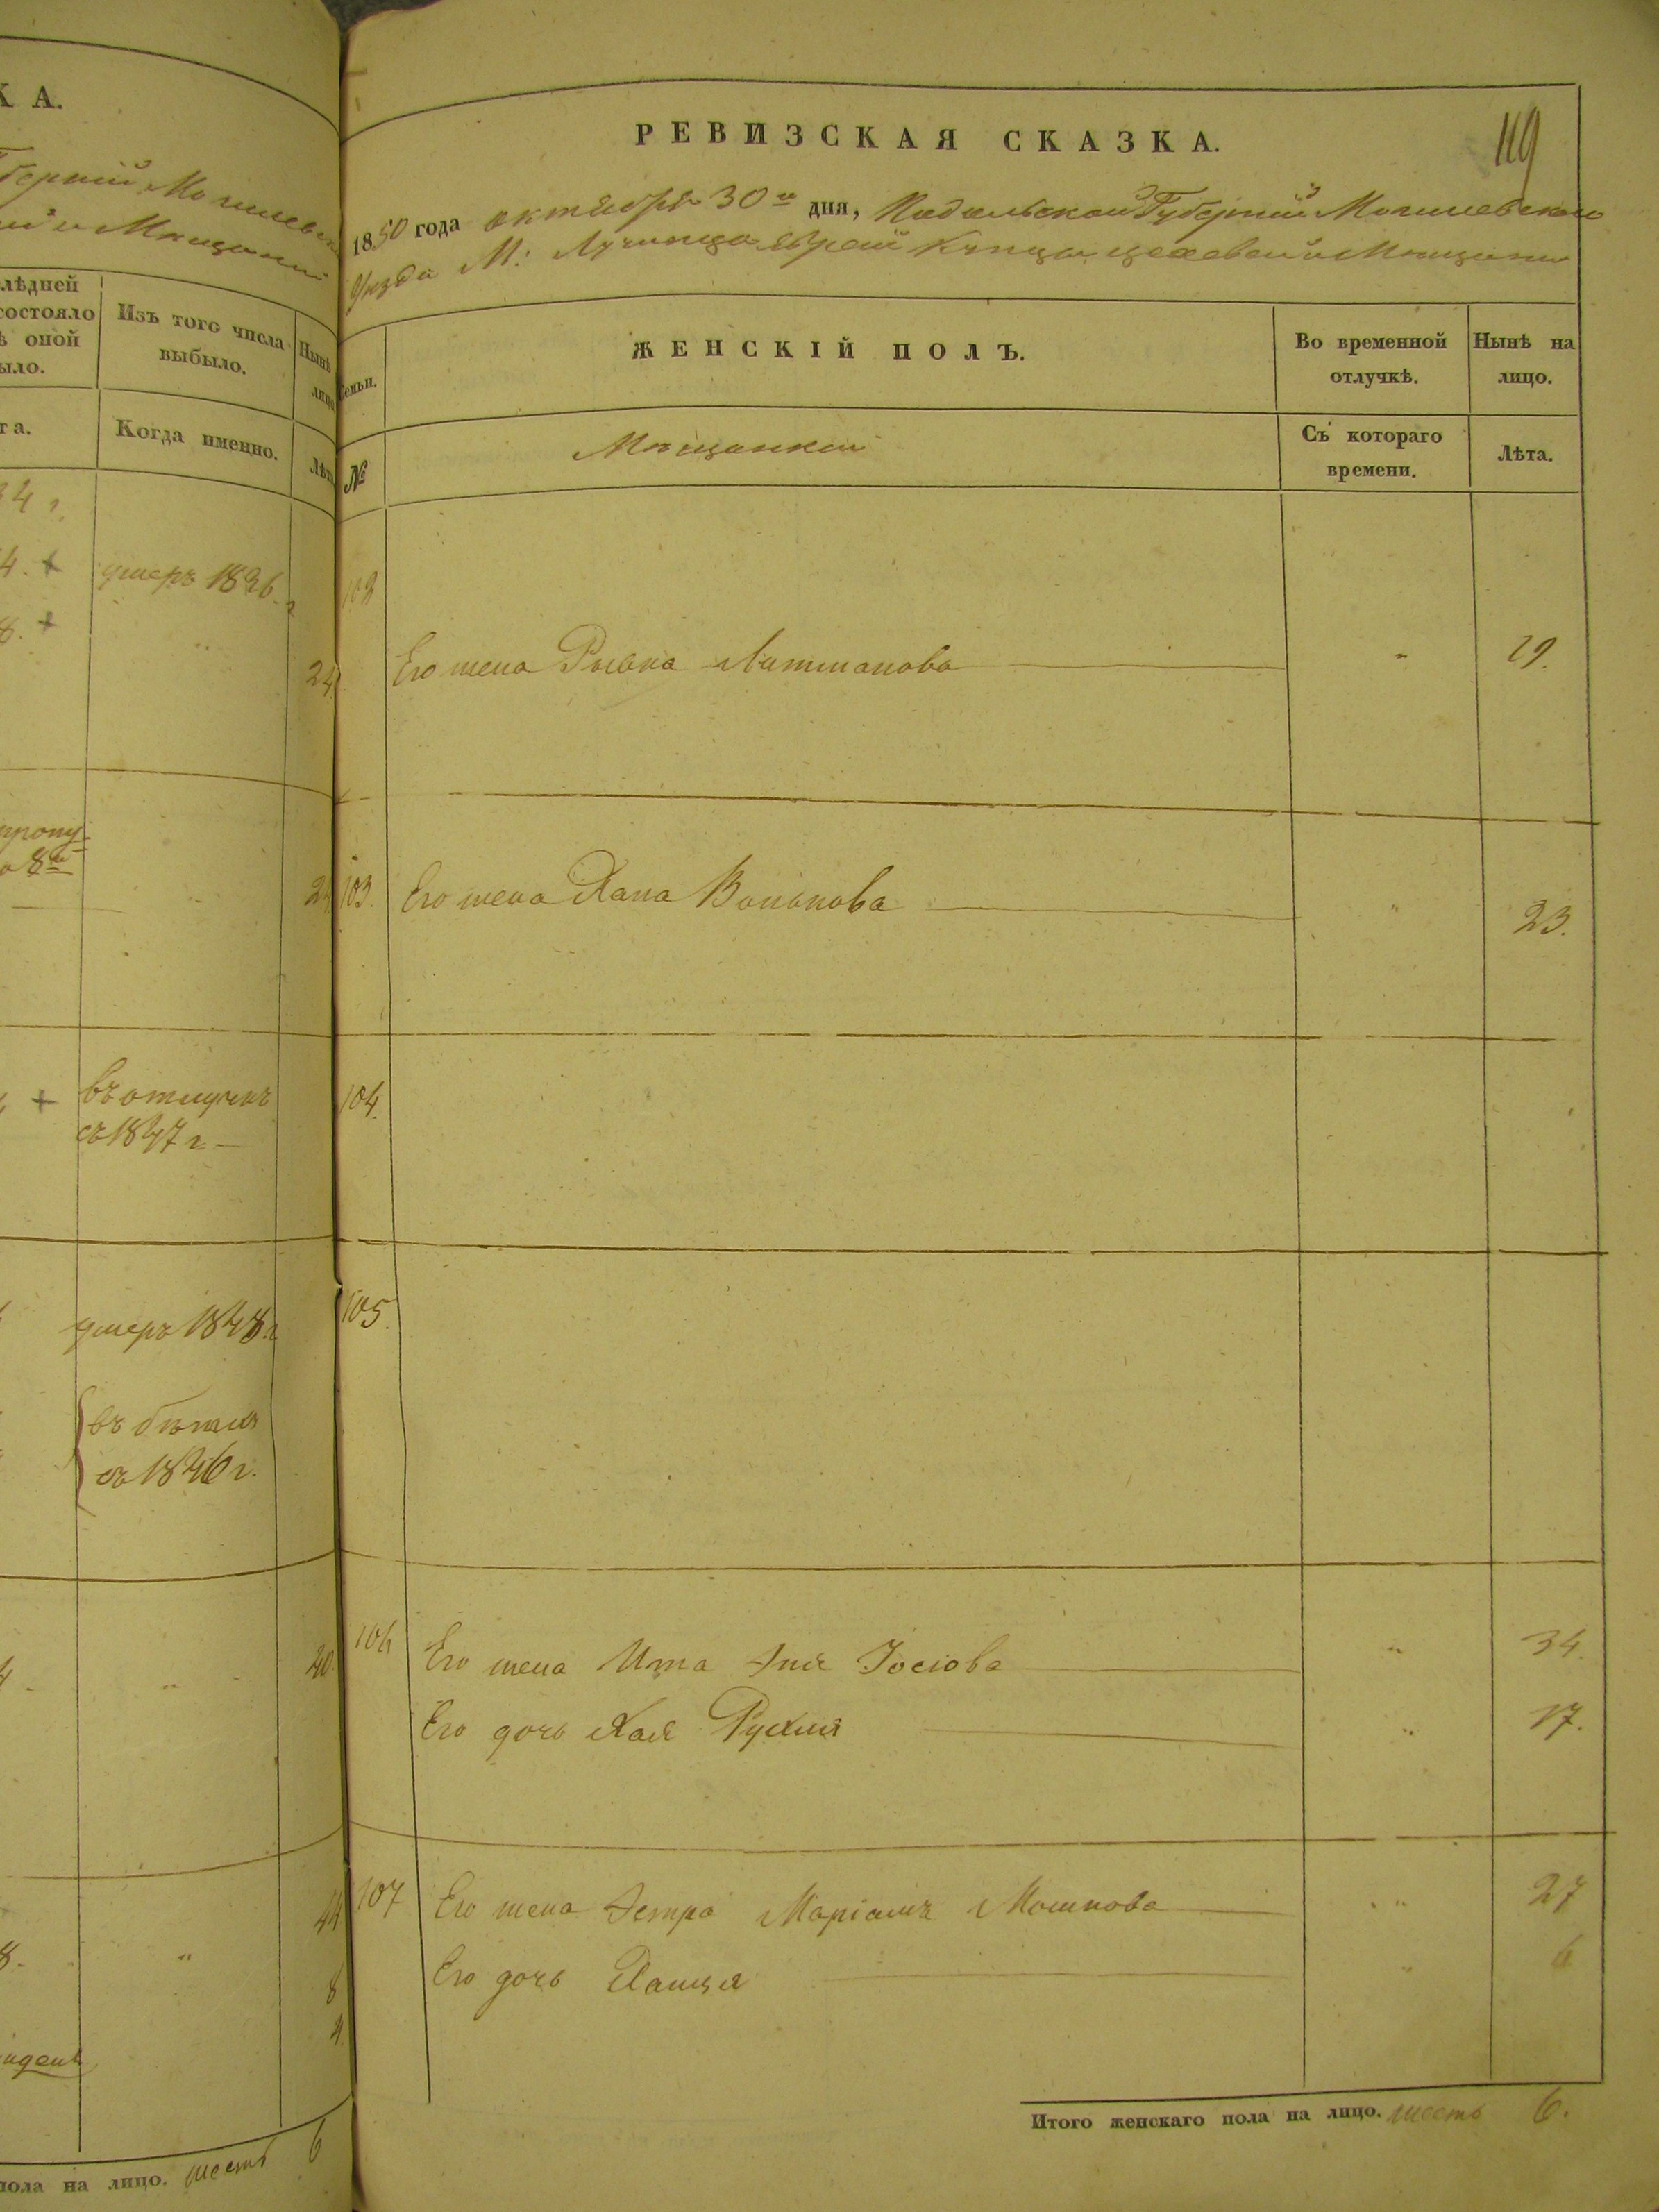 К А.
лѣдней
состояло
ѣ оной
ыло.
Изъ того числа
выбыло.
Нынѣ
лицо
та.
Когда именно.
Лѣта
34 г.
4. +
умеръ 1836 г
8. +
24.
пропу-
въ отлучкѣ
съ 1847 г
умеръ 1848 г
въ бѣгахъ
съ 1846 г.
40
44
8
8.
4.
пола на лицо. шесть 6
РЕВИЗСКАЯ СКАЗКА.
119
1850 года октября 30го дня, Подольской Губерніи Могилевскаго
Уѣзда М: Лучинца Еврей Купцы цеховей и Мѣщане
Семьи.
ЖЕНСКІЙ ПОЛЪ.
Во временной
отлучкѣ.
Нынѣ на
лицо.
№
Мѣщанкаи
Съ котораго
времени.
Лѣта.
102
Его жена Рывка Литманова " 19.
103. Его жена Хана Волькова " 23.
104.
105.
106 Его жена Ита Эня Іосіова " 34.
Его дочь Хая Рухля " 17.
107 Его жена Эстра Маріамъ Мошкова " 27
Его дочь " 6
Итого женскаго пола на лицо. шесть 6.